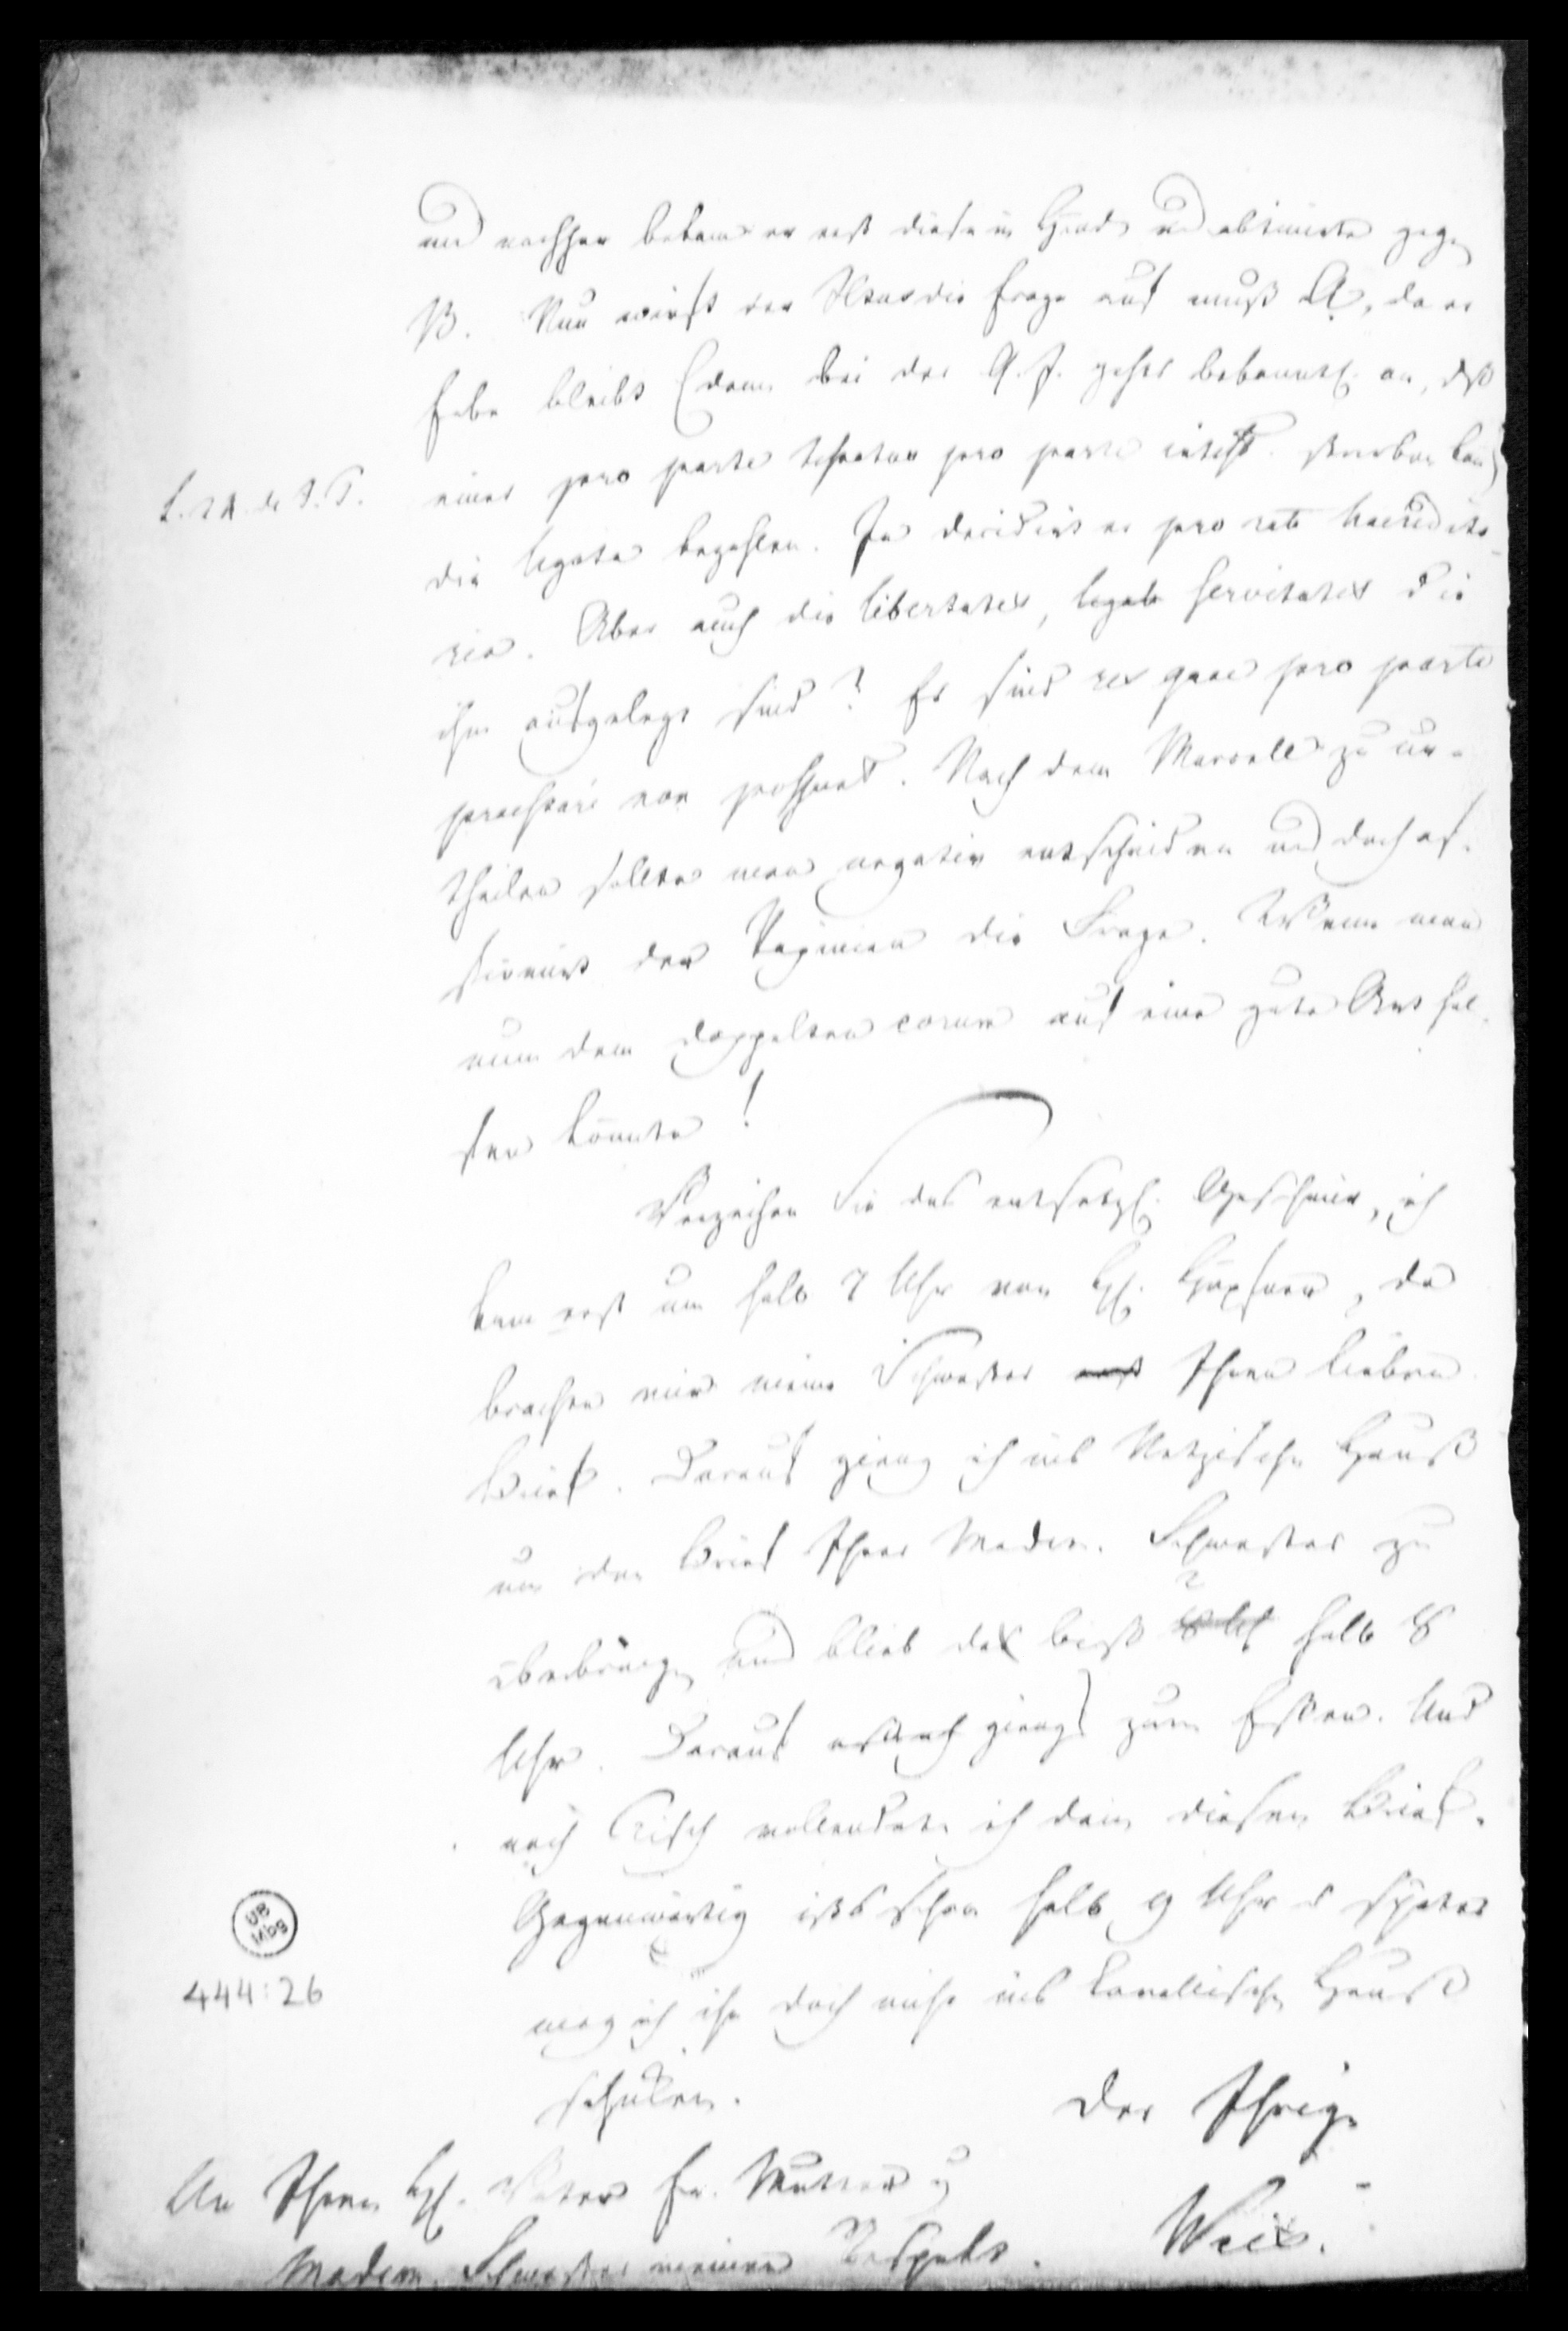 und nachher bekam er erst diese in Händ und obtinirte gegen
B. Nun wirft der die Frage auf muß A, da er
Erbe bleibt (denn bei der Q. J. gehts bekanntl. an, dß
einer pro parte testatus pro parte intest. sterben kan)
L. de I. T.
die legata bezahlen. Ja decidirt er pro rata haeredita-
ria. Aber auch die libertates, legate servitutes die
ihm aufgelegt sind? Es sind res quae pro parte
praestari non possunt. Nach dem Marcell zu ur-
theilen sollte man negativ entscheiden und doch af-
firmirt der Papinian die Frage. Wenn man
nun dem doppelten corum auf eine gute Art hel-
fen könnte!
Verzeihen Sie das entsetzl. Geschmier, ich
kam erst um halb 7 Uhr von HE. Höpfner, da
brachte mir meine Schwester Ihren lieben
Brief. Darauf gieng ich ins Hauß
um den Brief Ihrer Madem. Schwester zu
überbringen und blieb da biß 8 Uhr halb 8
Uhr. Darauf giengs zum Essen. Und
nach Tisch vollendete ich dann diesen Brief.
Gegenwärtig ists schon halb 9 Uhr u später
mag ich ihn doch nicht ins Hauß
schicken.
Der Ihrige
An Ihren HE. Vater Fr. Mutter u
Weis.
Madem. Schwester meinen Respekt.
UB
Mbg
444:26